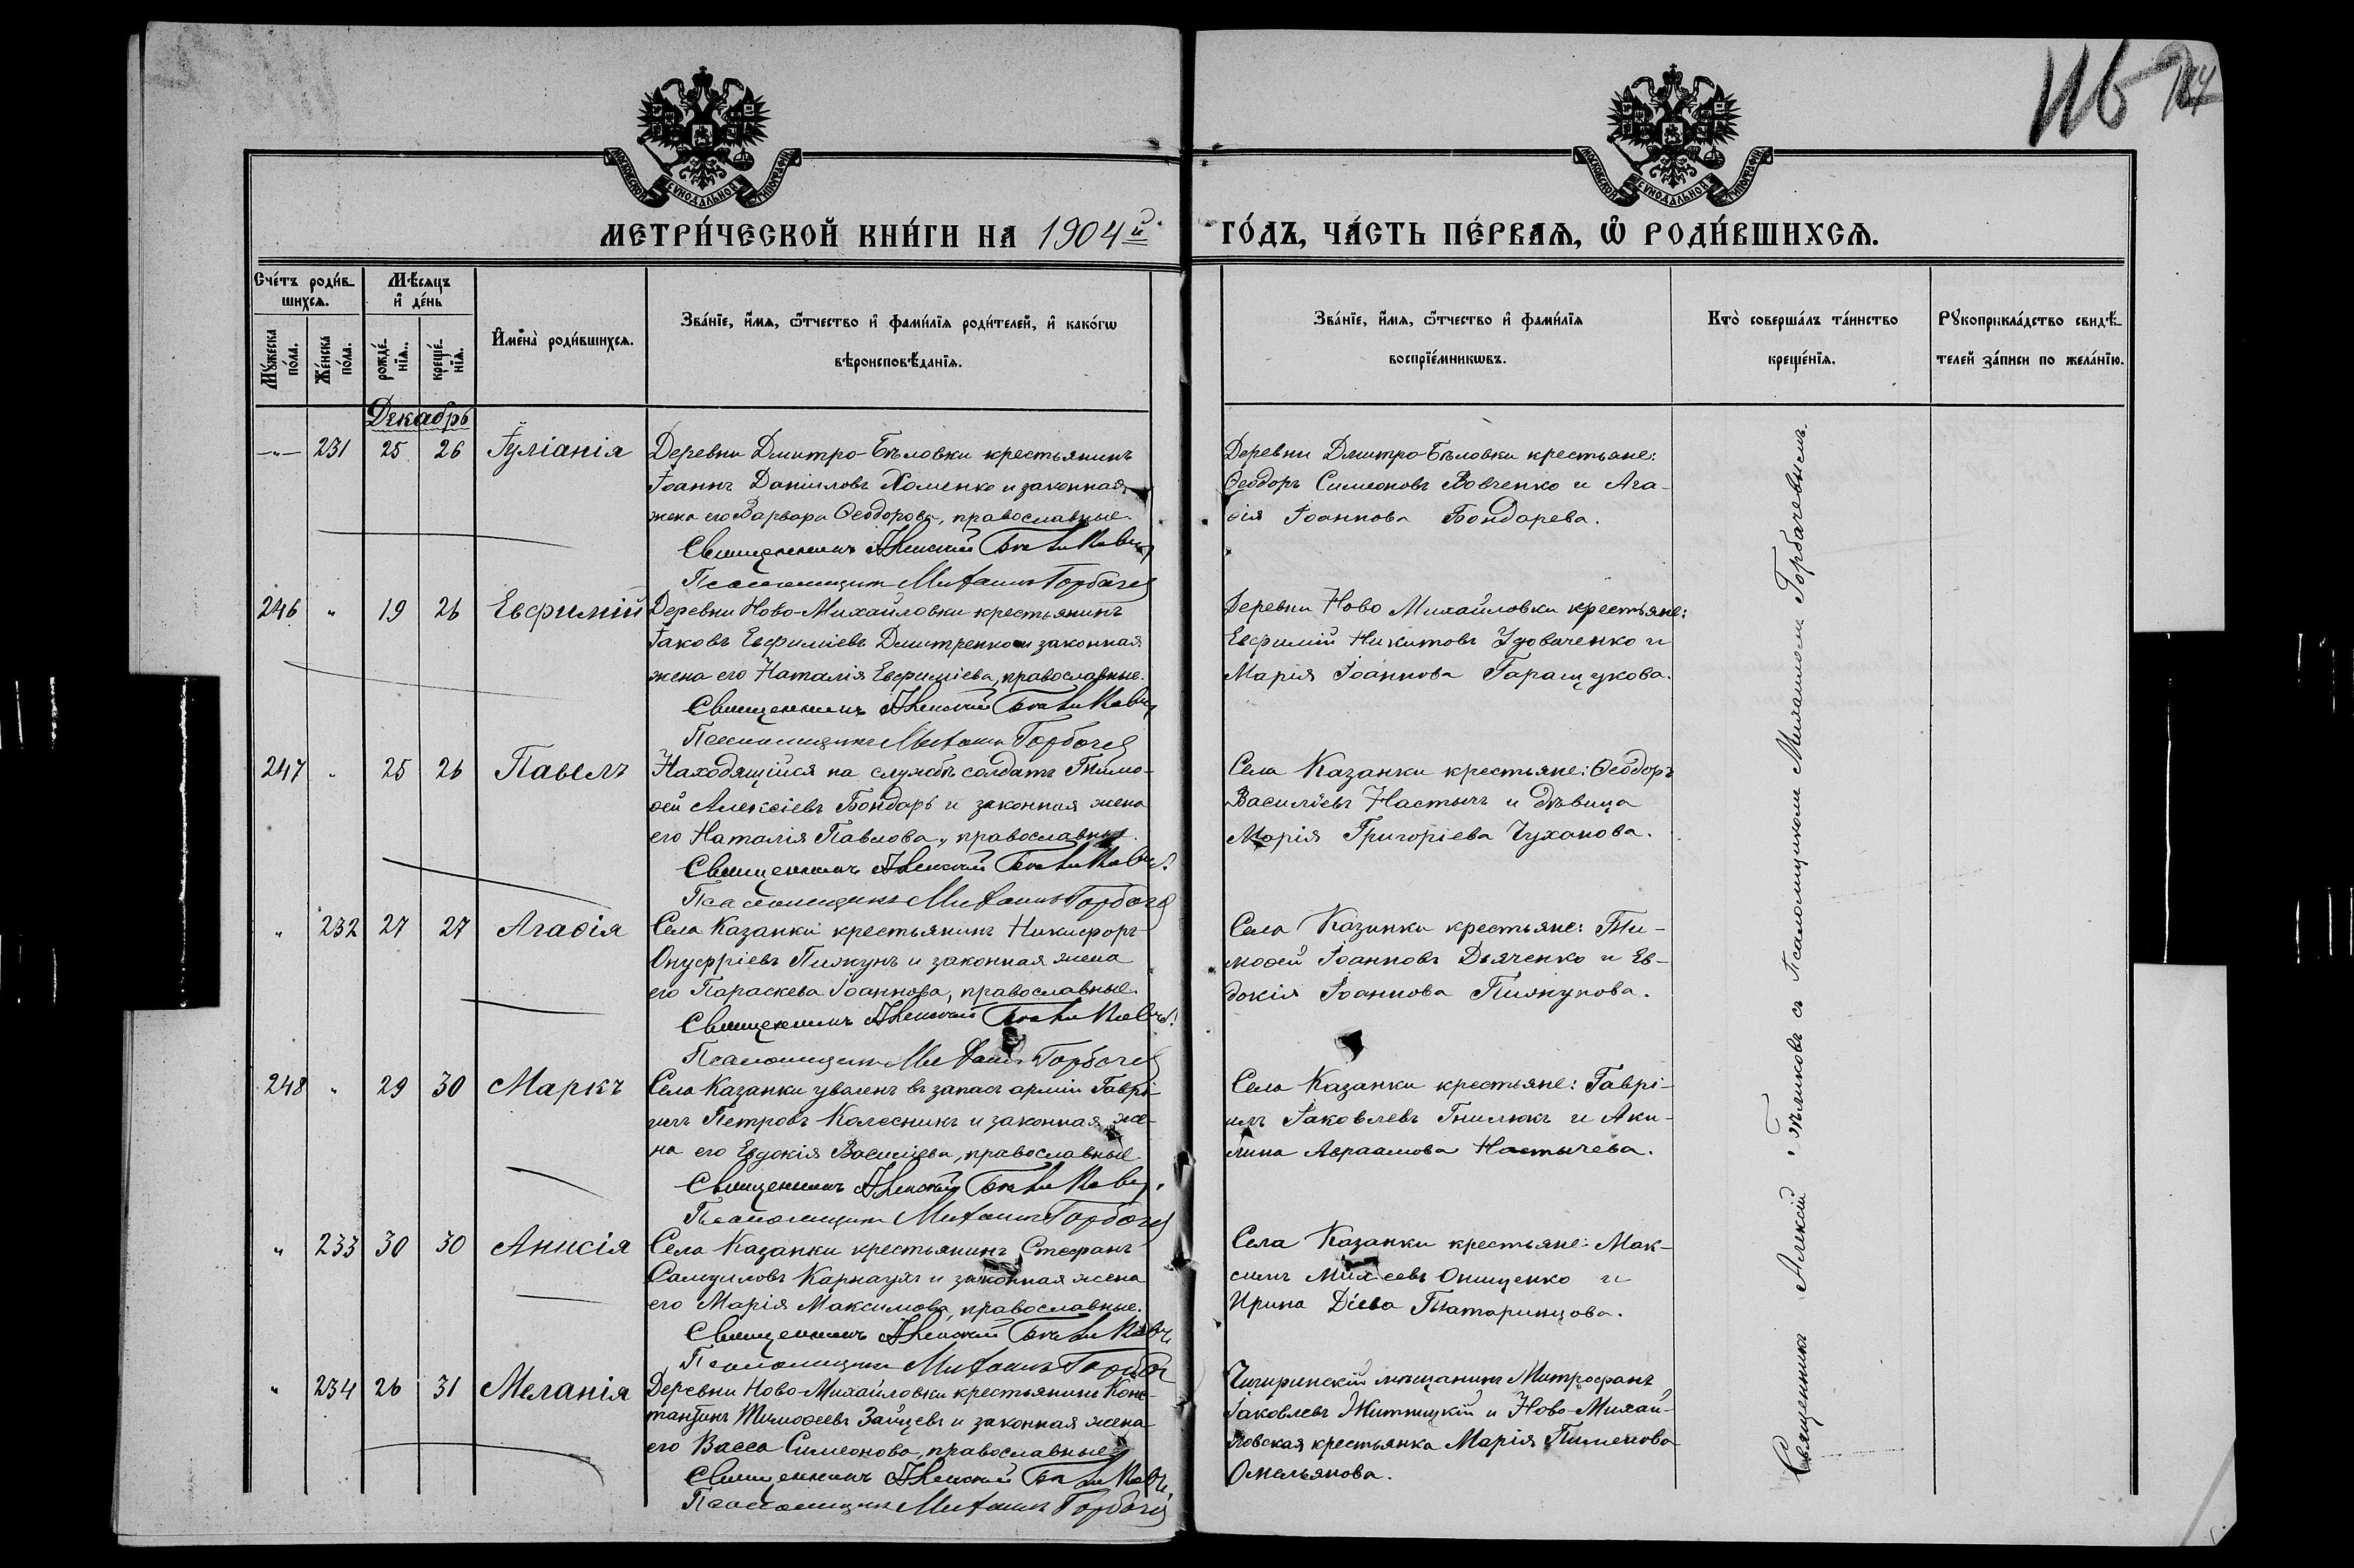 116
МОСКОВСКОЙ СѴНОДАЛЬНОЙ ТИПОГРАФІИ
МОСКОВСКОЙ СѴНОДАЛЬНОЙ ТИПОГРАФІИ
МЕТРИ́ЧЕСКОЙ КНИ́ГИ НА 1904й
ГО́ДЪ, ЧА́СТЬ ПЕ́РВАѦ, Ѡ҆ РОДИ́ВШИХСѦ.
Сче́тъ роди́в-
шихсѧ.
Мꙋ́жеска по́ла.
Же́нска по́ла.
Мѣ́сѧцъ
и҆ де́нь
рожде́-
нїѧ.
креще́-
нїѧ.
И҆мена̀ роди́вшихсѧ.
Зва́нїе, и҆́мѧ, ѻ҆́тчество и҆ фами́лїѧ роди́телей, и҆ како́гѡ
вѣроисповѣ́данїѧ.
Зва́нїе, и҆́мѧ, ѻ҆́тчество и҆ фами́лїѧ
воспрїе́мникѡвъ.
Кто̀ соверша́лъ та́инство
креще́нїѧ.
Рꙋкоприкла́дство свидѣ́-
телей за́писи по жела́нїю.
Декабрь
-"- 231 25 26 Іуліанія
Деревни Дмитро-Бѣловки крестьянинъ
Іоаннъ Даніиловъ Хоменко и законная
жена его Варвара Ѳеодорова, православные.
Священникъ Алексій Бѣликовъ
Псаломщикъ Михаилъ Горбачев
Деревни Дмитро-Бѣловки крестьяне:
Ѳеодоръ Симеоновъ Вовченко и Ага-
ѳія Іоаннова Бондарева.
246 " 19 26 Евфимій
Деревни Ново-Михайловки крестьянинъ
Іаковъ Евфиміевъ Дмитренко и законная
жена его Наталія Евфиміева, православные.
Священникъ Алексій Бѣликовъ
Псаломщикъ Михаилъ Горбачев
Деревни Ново Михайловки крестьяне:
Евфимій Никитовъ Удовиченко и
Марія Іоаннова Гаращукова.
247 " 25 26 Павелъ
Находящійся на службѣ солдатъ Тимо-
ѳей Алексіевъ Бондарь и законная жена
его Наталія Павлова, православные.
Священникъ Алексій Бѣликовъ
Псаломщикъ Михаилъ Горбачев
Села Казанки крестьяне: Ѳеодоръ
Васильевъ Настычъ и дѣвица
Марія Григоріева Чуханова.
" 232 27 27 Агаѳія
Села Казанки крестьянинъ Никифоръ
Онуфріевъ Пижунъ и законная жена
его Параскева Іоаннова, православные.
Священникъ Алексій Бѣликовъ
Псаломщикъ Михаилъ Горбачев
Села Казанки крестьяне: Ти-
моѳей Іоанновъ Дьяченко и Ев-
докія Іоаннова Пижунова.
248 " 29 30 Маркъ
Села Казанки уволенъ въ запасъ арміи Гаврі-
илъ Петровъ Колесникъ и законная же-
на его Евдокія Василіева, православные
Священникъ Алексій Бѣликовъ
Псаломщикъ Михаилъ Горбачев
Села Казанки крестьяне: Гаврі-
илъ Іаковлевъ Гнилюкъ и Аки-
лина Авраамова Настычева.
" 233 30 30 Анисія
Села Казанки крестьянинъ Стефанъ
Самуиловъ Карнаухъ и законная жена
его Марія Максимова, православные.
Священникъ Алексій Бѣликовъ
Псаломщикъ Михаилъ Горбач
Села Казанки крестьяне: Мак-
симъ Михеевъ Онищенко и
Ирина Діева Татаринцова.
" 234 26 31 Меланія
Деревни Ново-Михайловки крестьянинъ Конс-
тантинъ Тимоѳеевъ Зайцевъ и законная жена
его Васса Симеонова, православные
Священникъ Алексій Бѣликовъ
Псаломщикъ Михаилъ Горбачев
Чигиринскій мѣщанинъ Митрофанъ
Іаковлевъ Житницкій и Ново-Михай-
ловская крестьянка Марія Пименова
Омельянова.
Священникъ Алексій Бѣликовъ съ Псаломщикомъ Михаиломъ Горбачевымъ.